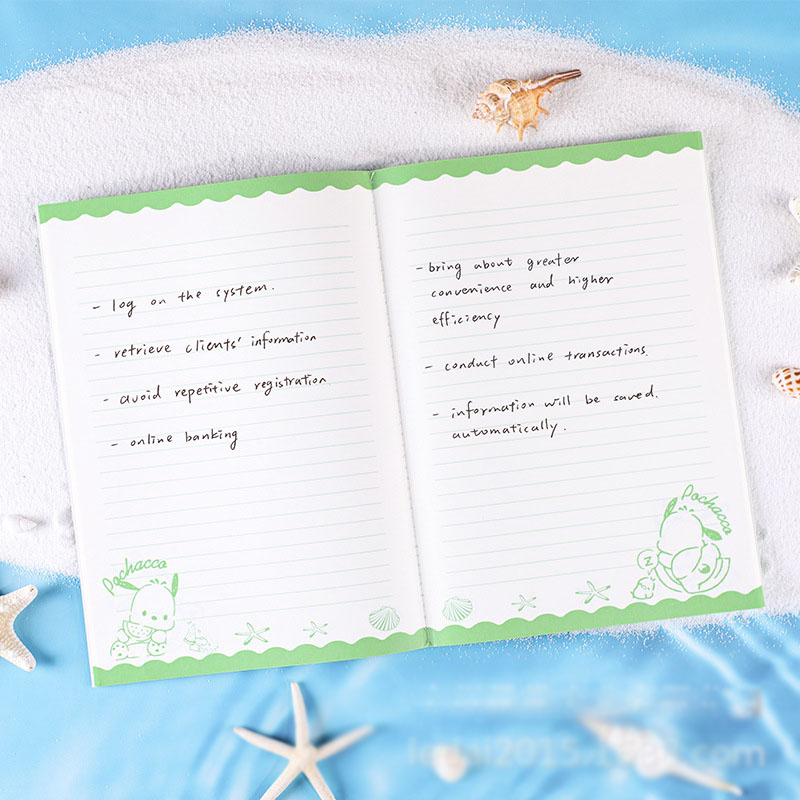 - log on the system.
- retrieve clients' information
- avoid repetitive registration
- online banking
Pochacco
- bring about greater
convenience and higher
efficiency
- conduct online transactions.
- information will be saved.
automatically.
Pochacco
z